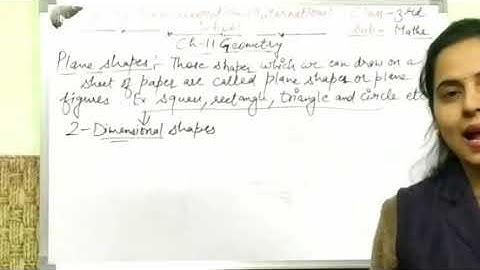 Class - 3rd
Sub:- Maths
Ch-11 Geometry
Plane shapes:- Those shapes which we can draw on a
sheet of paper are called plane shapes or plane
figures Ex squar, rectangle, triangle and circle etc
2-Dimensional shapes